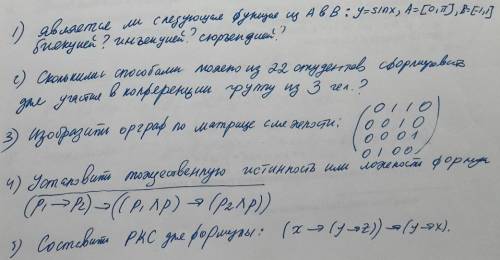 1) Является ли следующая функция из A в B: y=sinx, A=[0,π], B=[-1,1]
биекцией? инъекцией? сюръекцией?
2) Сколькими способами можно из 22 студентов сформировать
для участия в конференции группу из 3 чел.?
3) Изобразить орграф по матрице смежности: (0 1 1 0
0 0 1 0
0 0 0 1
0 1 0 0)
4) Установить тождественную истинность или ложность формул
(P₁→P₂)→((P₁∧P)→(P₂∧P))
5) Составить РКС для формулы: (x→(y→z))→(y→x).